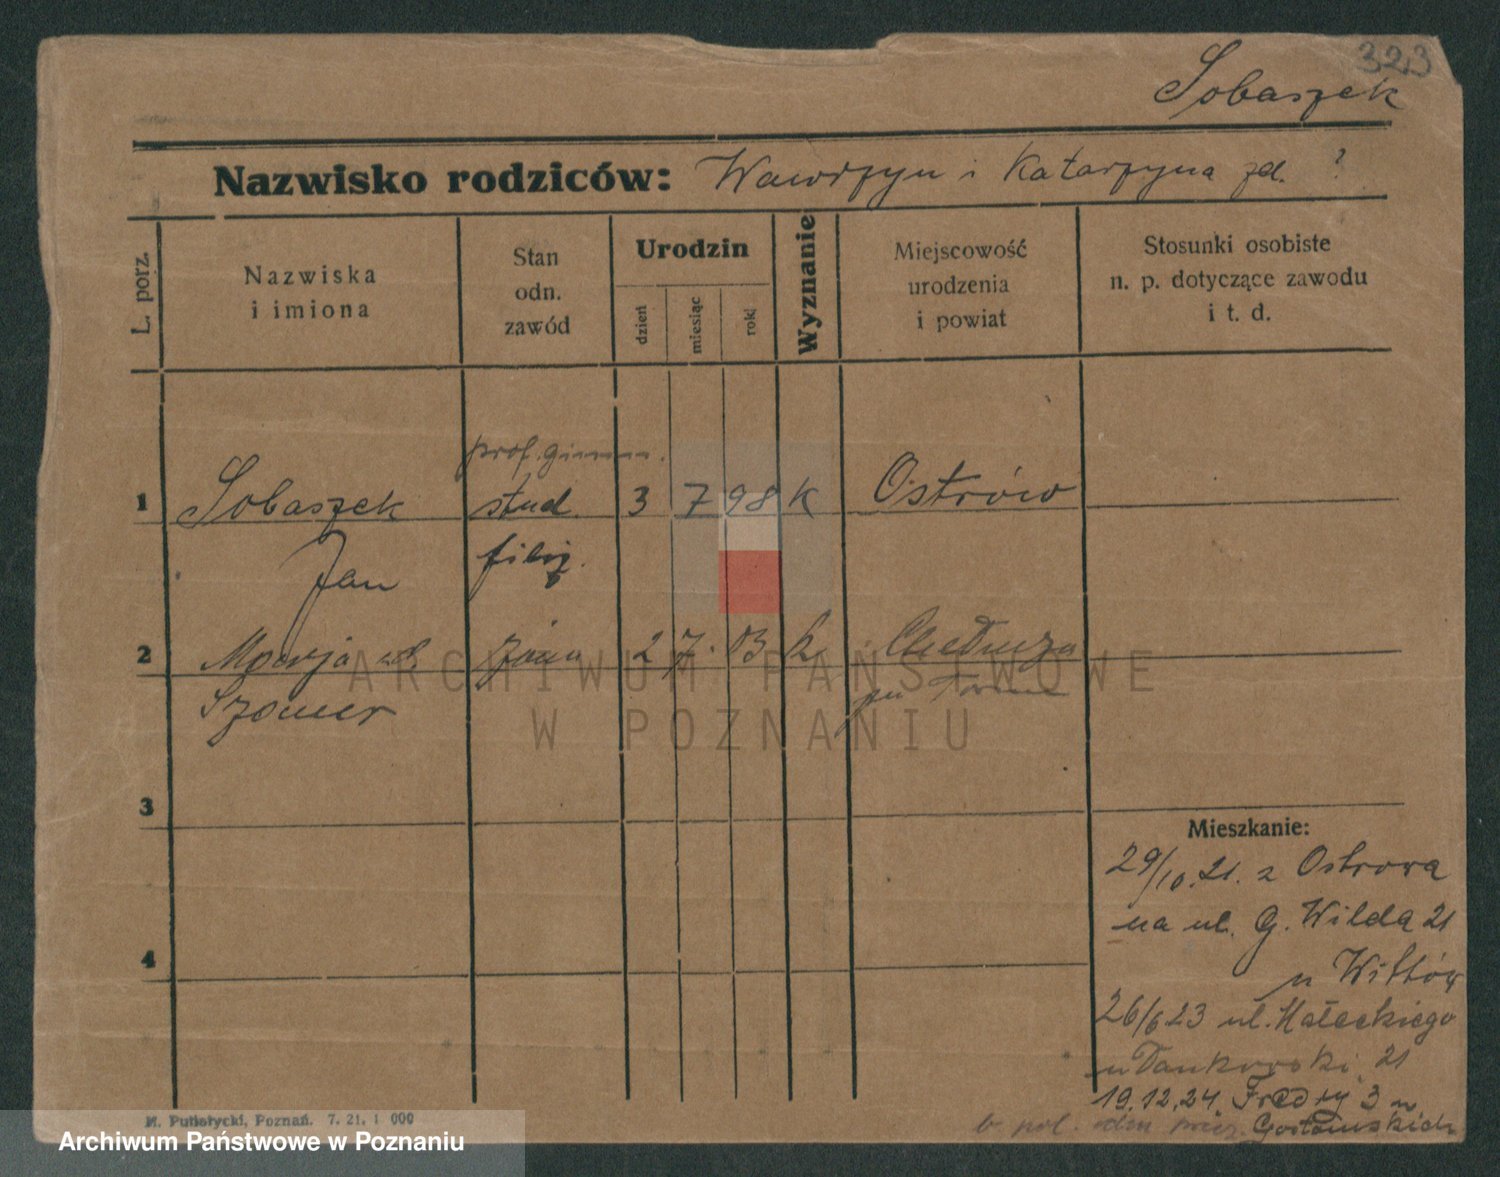 323
Sobaszek
Nazwisko rodziców: Wawrzyn i Katarzyna zd. ?
L. porz.
Nazwiska
i imiona
Stan
odn.
zawód
Urodzin
dzień
miesiąc
rok
Wyznanie
Miejscowość
urodzenia
i powiat
Stosunki osobiste
n. p. dotyczące zawodu
i t. d.
prof. gimn.
1 Sobaszek stud. 3 7 98 K Ostrów
Jan filoz.
2 Marja żona 2 7. 03 k
Szomer
ARCHIWUM PAŃSTWOWE
W POZNANIU
3
Mieszkanie:
29/10.21. z Ostrowa
na ul. G. Wilda 21
u Wittów
4
26/6 23 ul. Małeckiego
21
19.12.24. Fredry 3 u
Gostomskich
M. Putiatycki, Poznań. 7. 21. 1 000
Archiwum Państwowe w Poznaniu